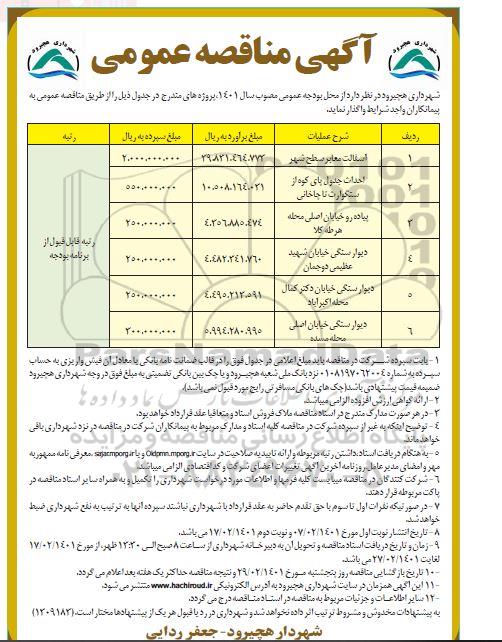 شهرداری هچیرود
آگهی مناقصه عمومی
شهرداری هچیرود
شهرداری هچیرود در نظر دارد از محل بودجه عمومی مصوب سال ۱۴۰۱، پروژه های مندرج در جدول ذیل را از طریق مناقصه عمومی به
پیمانکاران واجد شرایط واگذار نماید.
ردیف شرح عملیات مبلغ برآورد به ریال مبلغ سپرده به ریال رتبه
۱ آسفالت معابر سطح شهر ۳۹.۸۲۱.۴۶۴.۷۷۲ ۲.۰۰۰.۰۰۰.۰۰۰
۲ احداث جدول پای کوه از سنگوارت تا جاخانی ۱۰.۵۰۸.۱۶۴.۰۲۱ ۵۵۰.۰۰۰.۰۰۰
۳ پیاده رو خیابان اصلی محله هرطه کلا ۴.۳۵۶.۸۸۵.۴۷۴ ۲۵۰.۰۰۰.۰۰۰
رتبه قابل قبول از برنامه بودجه
۴ دیوار سنگی خیابان شهید عظیمی دوجمان ۴.۴۸۲.۳۴۱.۷۶۰ ۲۵۰.۰۰۰.۰۰۰
۵ دیوار سنگی خیابان دکتر کمال محله اکبرآباد ۴.۴۹۵.۲۱۳.۵۹۱ ۲۵۰.۰۰۰.۰۰۰
۶ دیوار سنگی خیابان اصلی محله مسده ۵.۹۹۴.۲۸۰.۹۹۵ ۳۰۰.۰۰۰.۰۰۰
۱ - بابت سپرده شرکت در مناقصه باید مبلغ اعلامی در جدول فوق را در قالب ضمانت نامه بانکی یا معادل آن فیش واریزی به حساب
سپرده به شماره ۰۱۰۸۱۹۷۰۶۲۰۰۴ نزد بانک ملی شعبه هچیرود و یا چک بین بانکی تضمینی به مبلغ فوق در وجه شهرداری هچیرود
ضمیمه قیمت پیشنهادی باشد (چک های بانکی مسافرتی رایج مورد قبول نمی باشد).
۲ - ارائه گواهی ارزش افزوده الزامی میباشد.
۳ - در هر صورت مدارک مندرج در اسناد مناقصه ملاک فروش اسناد و متعاقبا عقد قرارداد خواهد بود.
۴ - توضیح اینکه به غیر از سپرده شرکت در مناقصه کلیه اسناد و مدارک مربوط به پیمانکاران شرکت در مناقصه در نزد شهرداری باقی
خواهد ماند.
۵ - به هنگام دریافت اسناد، داشتن رتبه مربوطه و ارائه تاییدیه صلاحیت در سایت Oldpmn.mporg.ir و یا sajar.mporg.ir، معرفی نامه ممهور به
مهر و امضای مدیرعامل، روزنامه آخرین آگهی تغییرات اعضای شرکت و کد اقتصادی الزامی میباشد.
۶ - شرکت کنندگان در مناقصه میبایست کلیه فرمها و اطلاعات مورد درخواست شهرداری را تکمیل و به همراه سایر اسناد مناقصه در
پاکت مربوطه قرار دهند.
۷ - در صورتیکه نفرات اول تا سوم با حق تقدم حاضر به عقد قرارداد با شهرداری نباشند سپرده آنها به ترتیب به نفع شهرداری ضبط
خواهد شد.
۸ - تاریخ انتشار نوبت اول مورخ ۰۷/۰۲/۱۴۰۱ و نوبت دوم ۱۷/۰۲/۱۴۰۱ می باشد.
۹ - زمان و تاریخ دریافت اسناد مناقصه و تحویل آن به دبیرخانه شهرداری از ساعت ۸ صبح الی ۱۳:۳۰ ظهر، از مورخ ۱۷/۰۲/۱۴۰۱
لغایت ۲۷/۰۲/۱۴۰۱ می باشد.
۱۰ - تاریخ بازگشایی مناقصه روز پنجشنبه مورخ ۲۹/۰۲/۱۴۰۱ و نتیجه مناقصه حداکثر یک هفته بعد اعلام می گردد.
۱۱ - این آگهی همزمان در سایت شهرداری هچیرود به آدرس الکترونیکی www.hachiroud.ir منتشر می شود.
۱۲ - سایر اطلاعات و جزئیات مربوط به مناقصه در اسناد مناقصه درج می گردد.
به پیشنهادات مخدوش و مشروط ترتیب اثر داده نخواهد شد و شهرداری در رد یا قبول هر یک از پیشنهادها مختار است. (۱۳۰۹۱۸۲)
شهردار هچیرود - جعفر ردایی